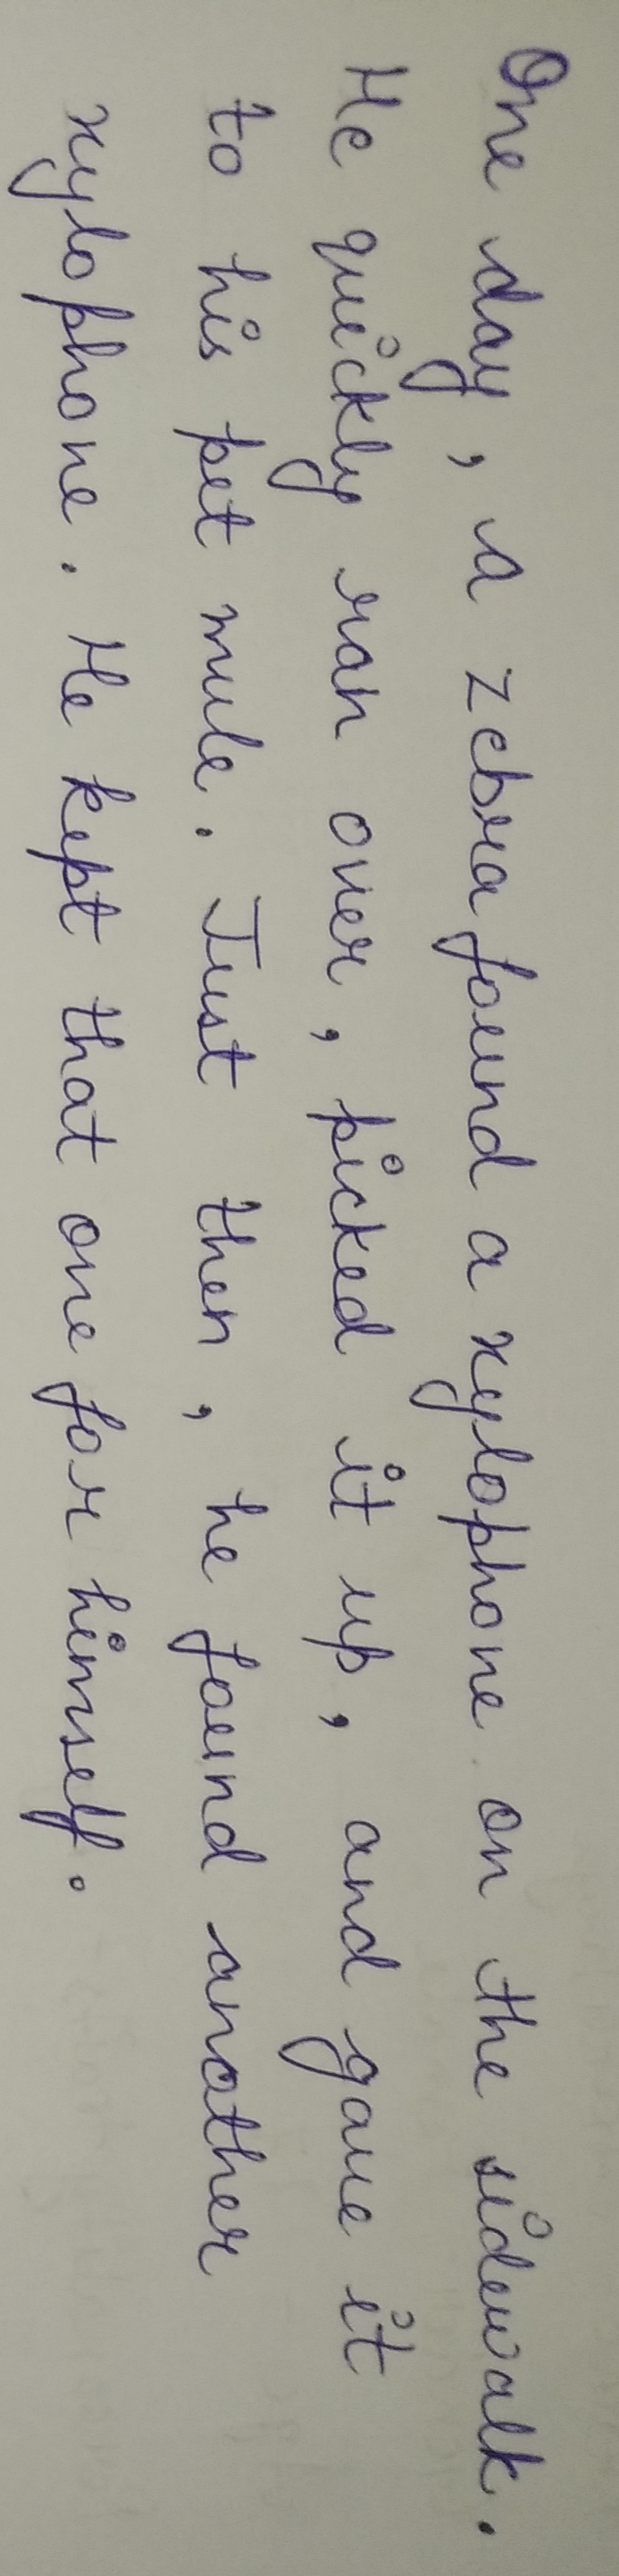 One day, a zebra found a xylophone on the sidewalk.
He quickly ran over, picked it up, and gave it
to his pet mule. Just then, he found another
xylophone. He kept that one for himself.